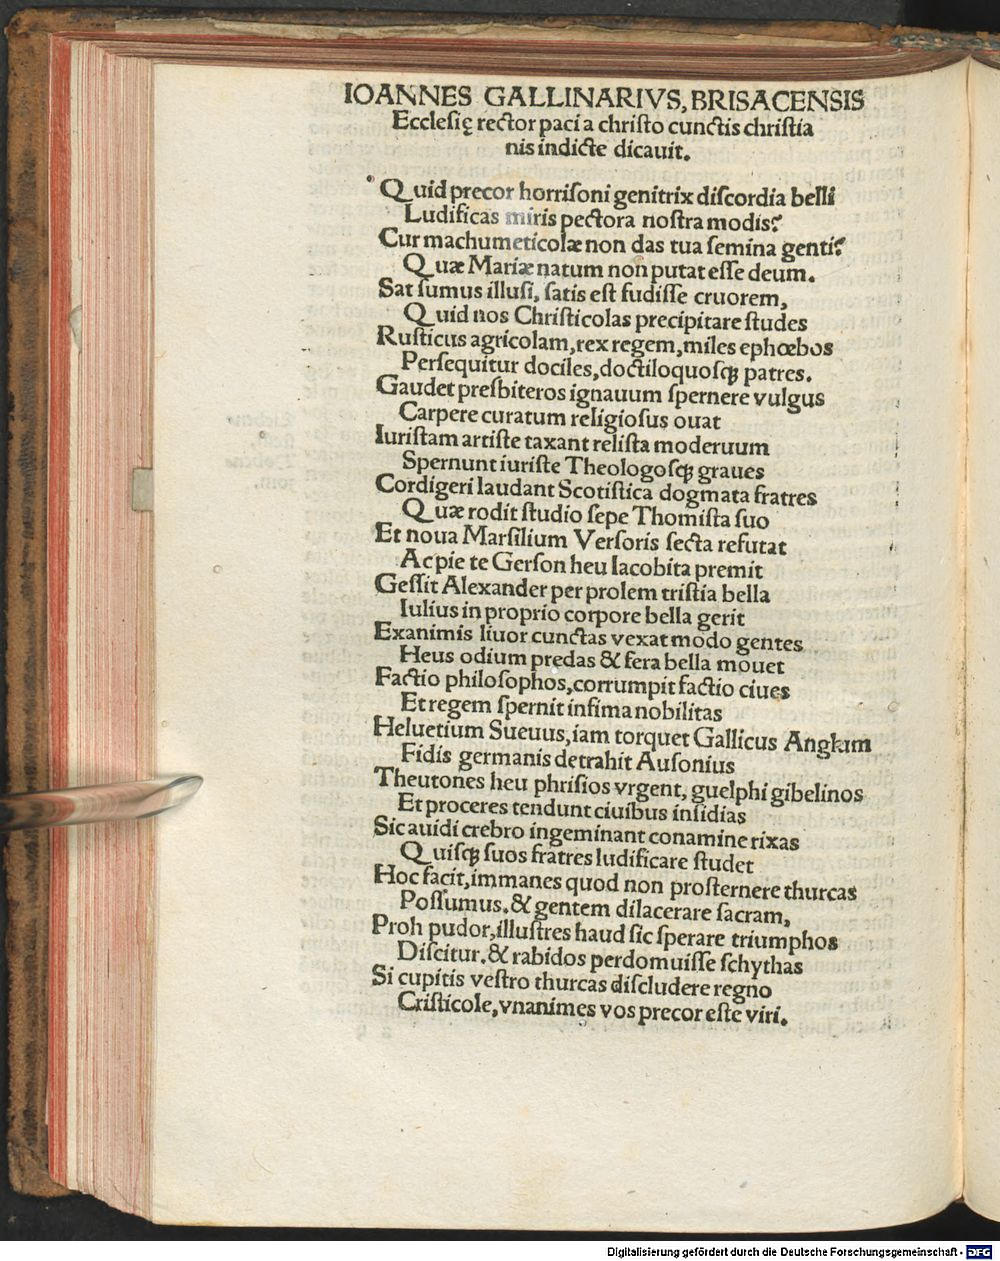 IOANNES GALLINARIVS, BRISACENSIS
Ecclesię rector paci a christo cunctis christia
nis indicte dicauit.
Quid precor horrisoni genitrix discordia belli
Ludificas miris pectora nostra modis?
Cur machumeticolæ non das tua semina genti?
Quæ Mariæ natum non putat esse deum.
Sat sumus illusi, satis est fudisse cruorem,
Quid nos Christicolas precipitare studes
Rusticus agricolam, rex regem, miles ephœbos
Persequitur dociles, doctiloquosqꝫ patres.
Gaudet presbiteros ignauum spernere vulgus
Carpere curatum religiosus ouat
Iuristam artiste taxant relista moderuum
Spernunt iuriste Theologosqꝫ graues
Cordigeri laudant Scotistica dogmata fratres
Quæ rodit studio sepe Thomista suo
Et noua Marsilium Versoris secta refutat
Ac pie te Gerson heu Iacobita premit
Gessit Alexander per prolem tristia bella
Iulius in proprio corpore bella gerit
Exanimis liuor cunctas vexat modo gentes
Heus odium predas & fera bella mouet
Factio philosophos, corrumpit factio ciues
Et regem spernit infima nobilitas
Heluetium Sueuus, iam torquet Gallicus Anglum
Fidis germanis detrahit Ausonius
Theutones heu phrisios vrgent, guelphi gibelinos
Et proceres tendunt ciuibus insidias
Sic auidi crebro ingeminant conamine rixas
Quisqꝫ suos fratres ludificare studet
Hoc facit, immanes quod non prosternere thurcas
Possumus. & gentem dilacerare sacram,
Proh pudor, illustres haud sic sperare triumphos
Discitur. & rabidos perdomuisse schythas
Si cupitis vestro thurcas discludere regno
Cristicole, vnanimes vos precor este viri.
Digitalisierung gefördert durch die Deutsche Forschungsgemeinschaft - DFG